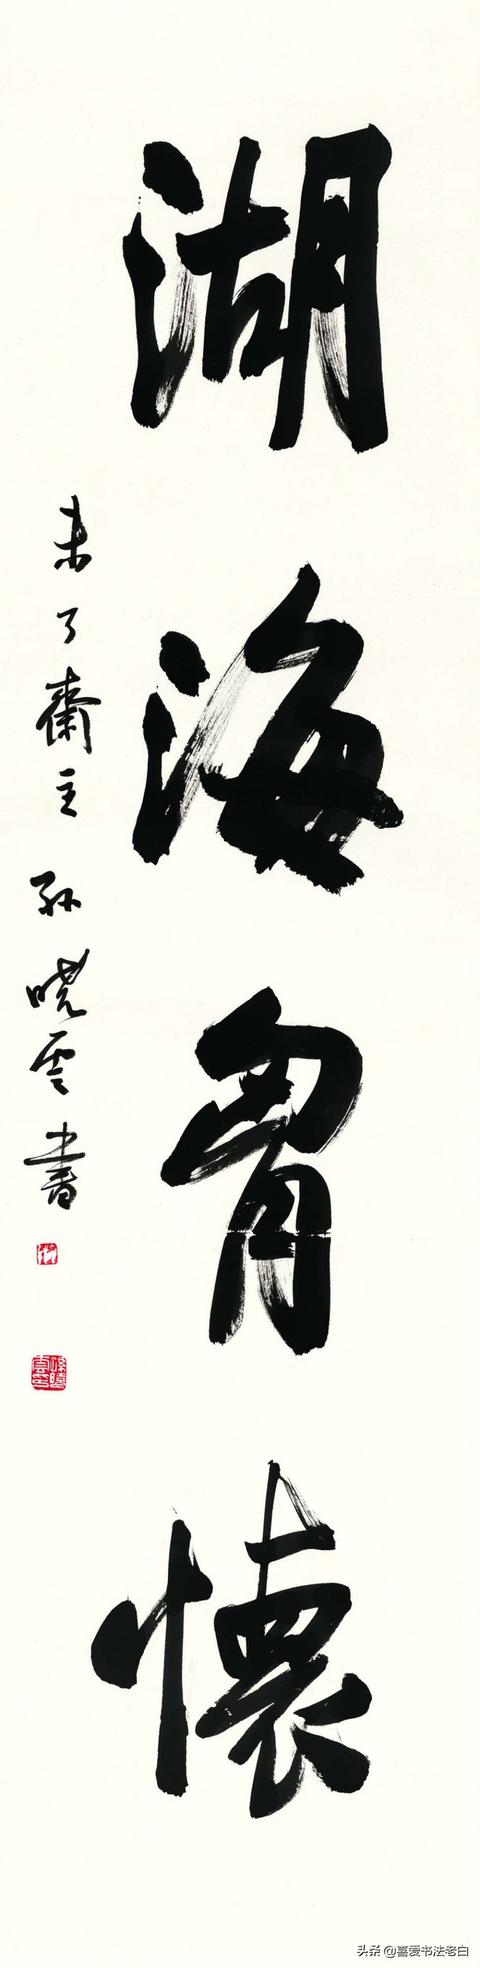 湖海胷懷
未了齋主孫曉雲書
头条 @喜爱书法老白